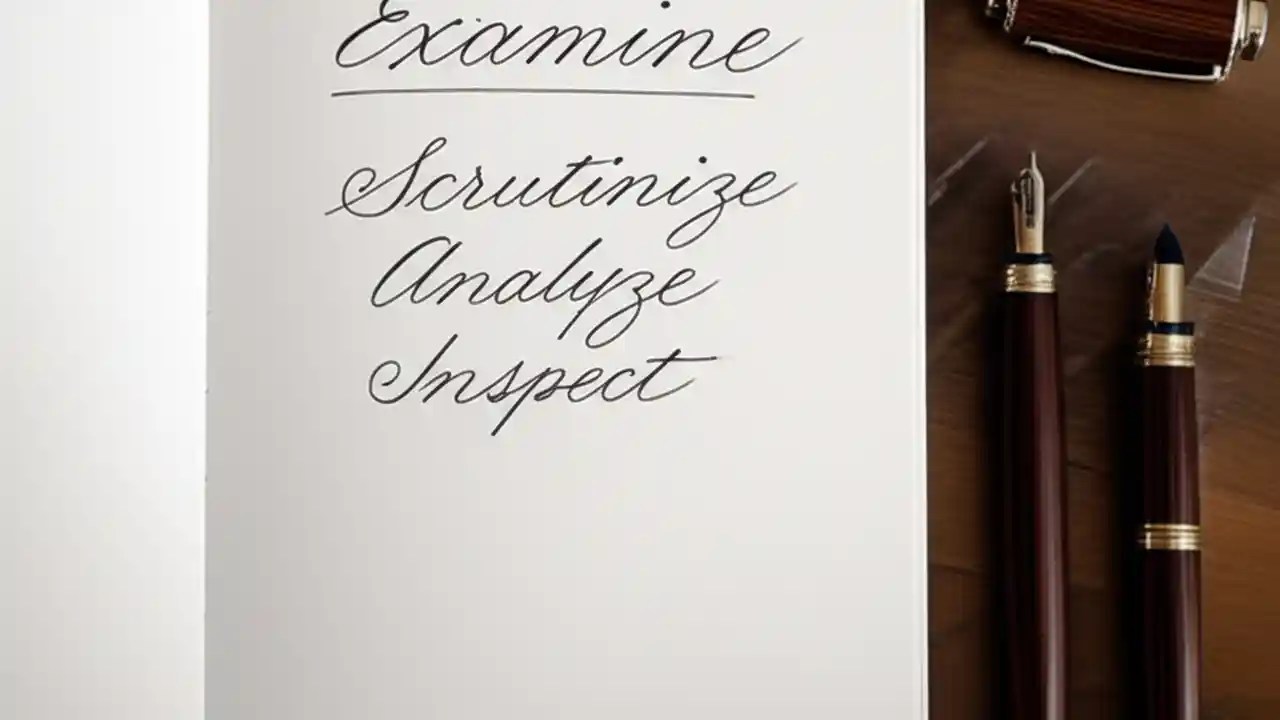 Examine
Scrutinize
Analyze
Inspect